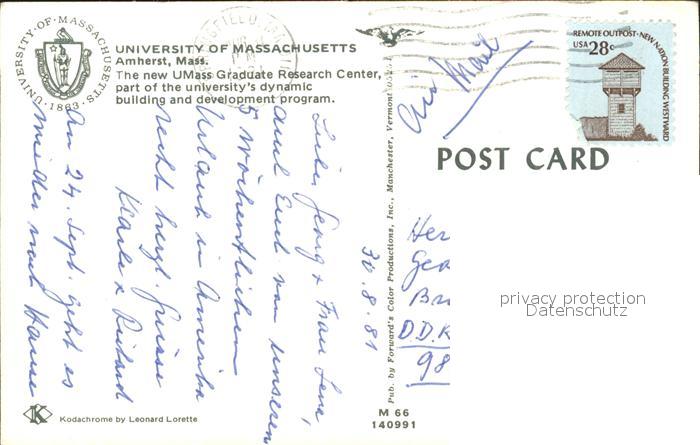 UNIVERSITY OF MASSACHUSETTS
Amherst, Mass.
The new UMass Graduate Research Center,
part of the university's dynamic
building and development program.
UNIVERSITY·OF·MASSACHUSETTS
·1863·
REMOTE OUTPOST·NEW NATION BUILDING WESTWARD
USA 28c
Air Mail
POST CARD
30.8.81
Liebe Georg + Frau Lene,
auch Euch von unseren
5 wöchentlichen
Urlaub in Amerika
recht herzl. Grüsse
Karla + Richard
Am 24. Sept. geht es
wieder nach Hause
Her
Geo
D.D.R
98
privacy protection
Datenschutz
Pub. by Forward's Color Productions, Inc., Manchester, Vermont
K
Kodachrome by Leonard Lorette
M 66
140991